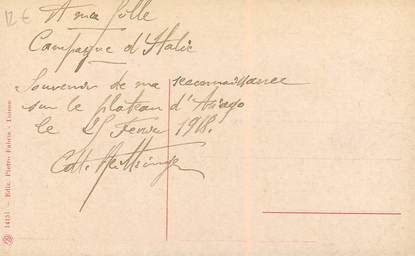 12 €
A ma Fille
Campagne d'Italie
Souvenir de ma reconnaissance
sur le plateau d'Asiago
le 25 Fevrier 1918.
Cdt.
14151 — Ediz. Pietro Fabris - Torino